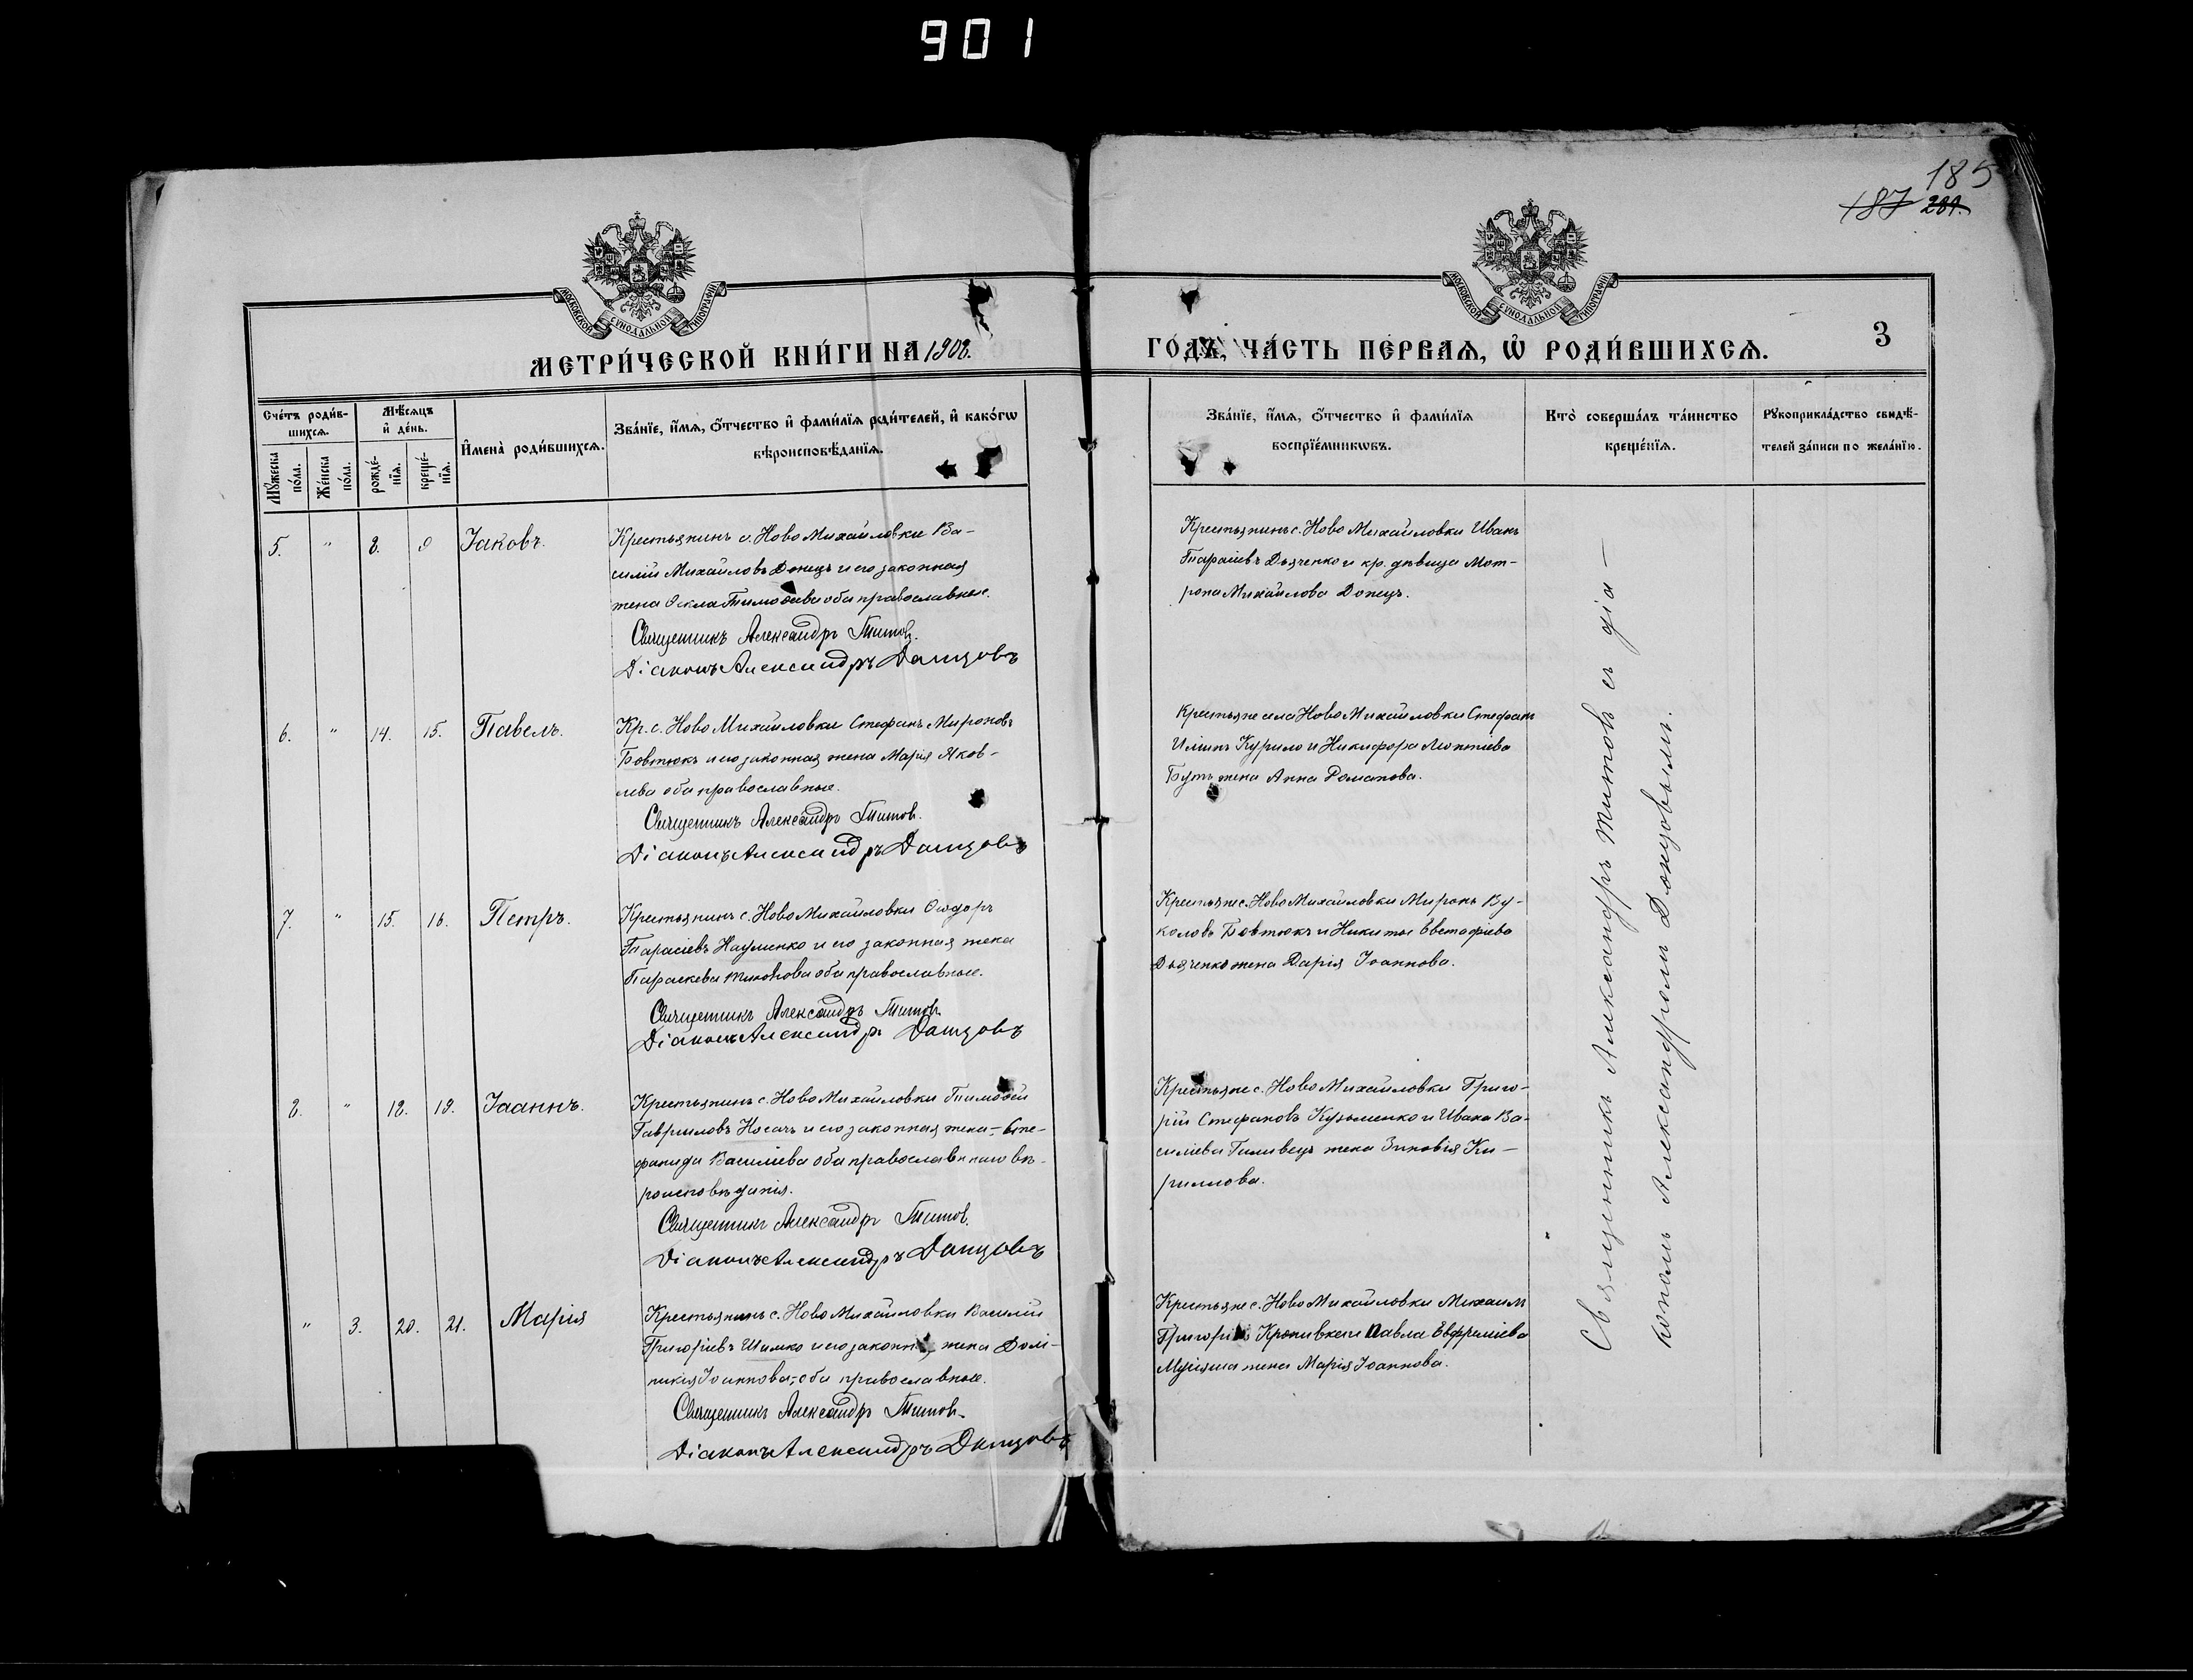 901
185
187 289.
МОСКОВСКОЙ СѴНОДАЛЬНОЙ ТИПОГРАФІИ
МОСКОВСКОЙ СѴНОДАЛЬНОЙ ТИПОГРАФІИ
МЕТРИ́ЧЕСКОЙ КНИ́ГИ НА 1908.
ГО́ДЪ, ЧА́СТЬ ПЕ́РВАѦ, Ѡ҆ РОДИ́ВШИХСѦ.
3
Сче́тъ роди́в-
шихсѧ.
Мѹ́жеска по́ла.
Же́нска по́ла.
Мѣ́сѧцъ
и҆ де́нь.
рожде́-
нїѧ.
креще́-
нїѧ.
И҆мена̀ роди́вшихсѧ.
Зва́нїе, и҆́мѧ, ѻ҆́тчество и҆ фами́лїѧ роди́телей, и҆ како́гѡ
вѣроисповѣ́данїѧ.
Зва́нїе, и҆́мѧ, ѻ҆́тчество и҆ фами́лїѧ
воспрїе́мникѡвъ.
Кто̀ соверша́лъ та́инство
креще́нїѧ.
Рѹкоприкла́дство свидѣ́-
телей за́писи по жела́нїю.
5. " 8. 9 Іаковъ.
Крестьянинъ с. Ново Михайловки Ва-
силій Михайловъ Донецъ и его законная
жена Ѳекла Тимоѳеева оба православные.
Священникъ Александръ Титов.
Діаконъ Александръ Донцовъ
Крестьянинъ с. Ново Михайловки Иванъ
Тарасіевъ Дьяченко и кр. дѣвица Мот-
рона Михайлова Донецъ.
6. " 14. 15. Павелъ.
Кр. с. Ново Михайловки Стефанъ Мироновъ
Бовтюкъ и его законная жена Марія Яков-
лева оба православные.
Священникъ Александръ Титов.
Діаконъ Александръ Донцовъ
Крестьяне села Ново Михайловки Стефанъ
Иліинъ Курило и Никифора Леонтіева
Бутъ жена Анна Романова.
7. " 15. 16. Петръ.
Крестьянинъ с. Ново Михайловки Ѳеодоръ
Тарасіевъ Науменко и его законная жена
Параскева Тихонова оба православные.
Священникъ Александръ Титов.
Діаконъ Александръ Донцовъ
Крестьяне с. Ново Михайловки Миронъ Ву-
коловъ Бовтюкъ и Никиты Евстафіева
Дьяченко жена Дарія Іоаннова.
8. " 18. 19. Іоаннъ.
Крестьянинъ с. Ново Михайловки Тимоѳей
Гавриловъ Носачъ и его законная жена Сте-
фанида Василіева оба православнаго вѣ-
роисповѣданія.
Священникъ Александръ Титов.
Діаконъ Александръ Донцовъ
Крестьяне с. Ново Михайловки Григо-
рій Стефановъ Кузьменко и Ивана Ва-
силіева жена Зиновія Ки-
риллова.
" 3. 20. 21. Марія
Крестьянинъ с. Ново Михайловки Василій
Григоріевъ Шимко и его законная жена Домі-
никія Іоаннова, оба православные.
Священникъ Александръ Титов.
Діаконъ Александръ Донцовъ
Крестьяне с. Ново Михайловки Михаилъ
Кропивка и Павла Евфреміева
жена Марія Іоаннова.
Священникъ Александръ Титовъ съ діа-
кономъ Александромъ Донцовымъ.